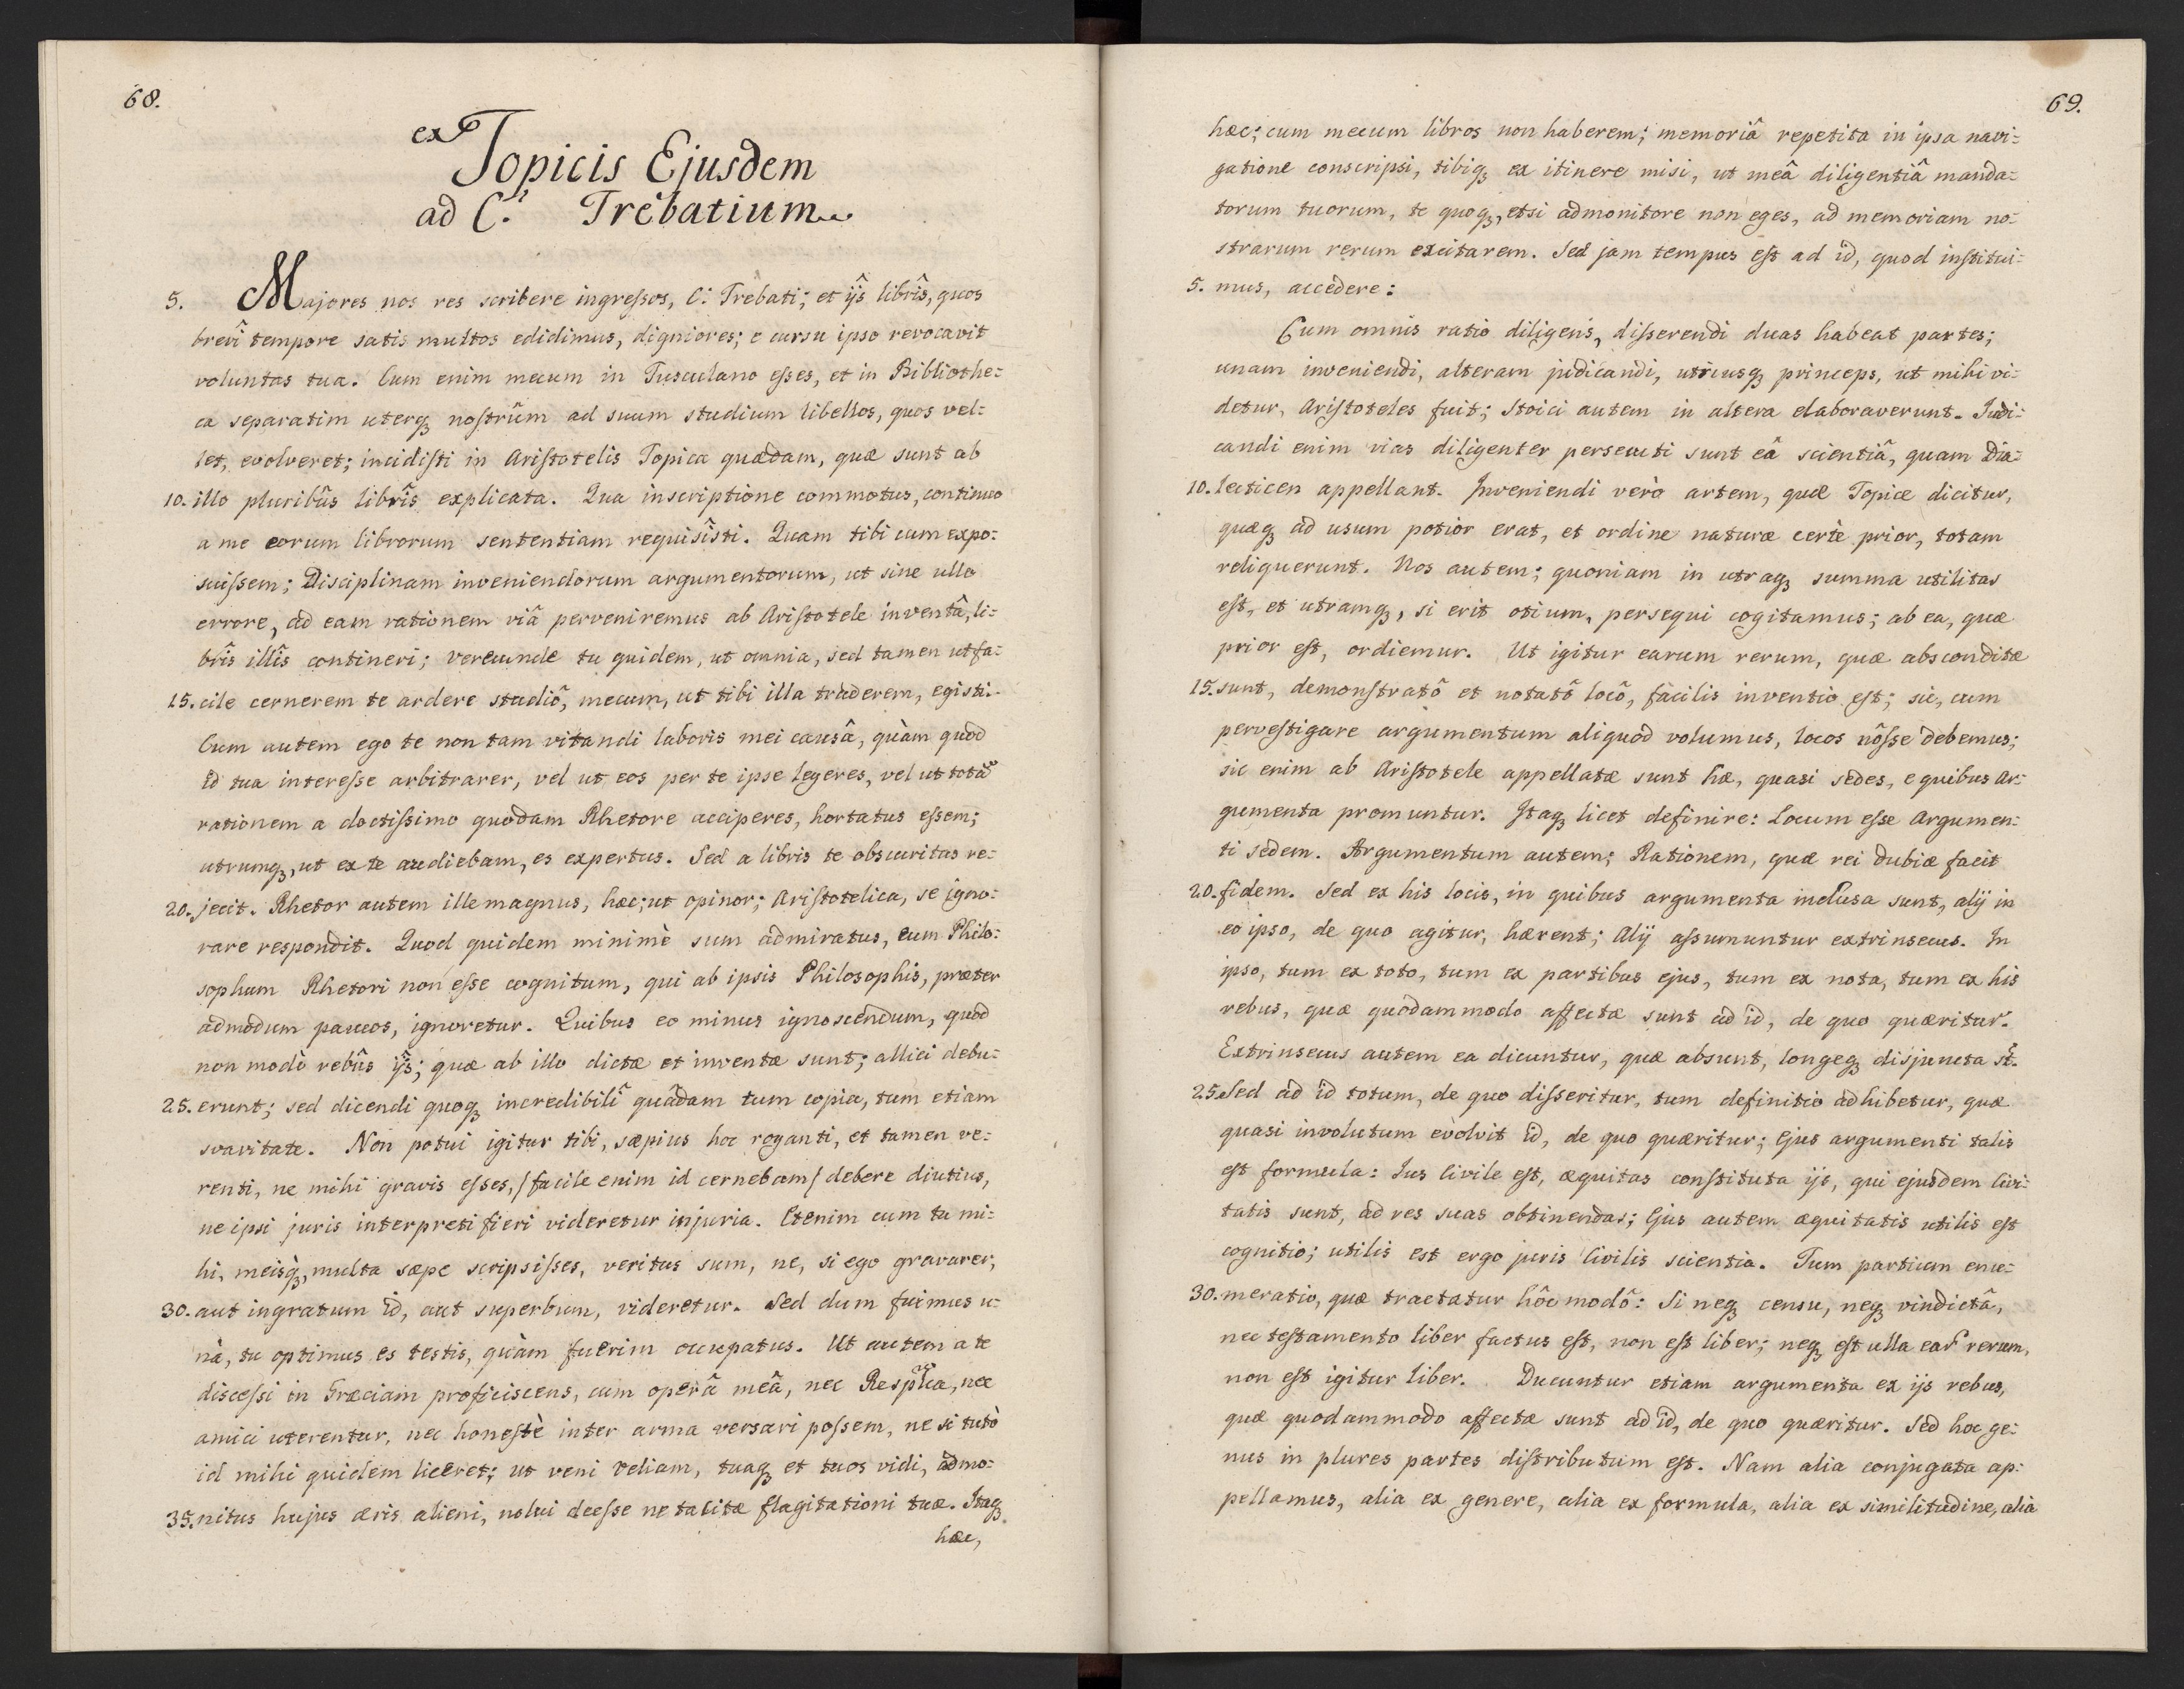 68.
ex
Topicis Ejusdem
ad C. Trebatium
5. Majores nos res scribere ingressos, C: Trebati; et ijs librîs, quos
brevî tempore satis multos edidimus, digniores; e cursu ipso revocavit
voluntas tua. Cum enim mecum in Tusculano esses, et in Bibliothe=
ca separatim uterq₃ nostrûm ad suum studium libellos, quos vel=
let, evolveret; incidisti in Aristotelis Topica quædam, quæ sunt ab
10. illo pluribûs librîs explicata. Qua inscriptione commotus, continuo
a me eorum librorum sententiam requisîsti. Quam tibi cum expo=
suissem; Disciplinam inveniendorum argumentorum, ut sine ullo
errore, ad eam rationem viâ perveniremus ab Aristotele inventâ, li=
brîs illîs contineri; verecunde tu quidem, ut omnia, sed tamen ut fa=
15. cile cernerem te ardere studiô, mecum, ut tibi illa traderem, egisti.
Cum autem ego te non tam vitandi laboris mei causâ, quàm quod
id tua interesse arbitrarer, vel ut eos per te ipse legeres, vel ut totã
rationem a doctissimo quodam Rhetore acciperes, hortatus essem;
utrumq₃, ut ex te audiebam, es expertus. Sed a libris te obscuritas re=
20. jecit. Rhetor autem ille magnus, hæc; ut opinor; Aristotelica, se igno=
rare respondit. Quod quidem minimè sum admiratus, eum Philo=
sophum Rhetori non esse cognitum, qui ab ipsis Philosophis, præter
admodum paucos, ignoretur. Quibus eo minus ignoscendum, quod
non modò rebûs ijs; quæ ab illo dictæ et inventæ sunt; allici debu=
25. erunt; sed dicendi quoq₃ incredibilî quâdam tum copia, tum etiam
svavitate. Non potui igitur tibi, sæpius hoc roganti, et tamen ve=
renti, ne mihi gravis esses, /facile enim id cernebam/ debere diutius,
ne ipsi juris interpreti fieri videretur injuria. Etenim cum tu mi=
hi, meisq₃, multa sæpe scripsisses, veritus sum, ne, si ego gravarer,
30. aut ingratum id, aut superbum, videretur. Sed dum fuimus u=
nà, tu optimus es testis, quàm fuerim occupatus. Ut autem a te
discessi in Græciam proficiscens, cum operâ meâ, nec Resplica, nec
amici uterentur, nec honestè inter arma versari possem, ne si tutò
id mihi quidem liceret; ut veni Veliam, tuaq₃ et tuos vidi, admo=
35. nitus hujus æris alieni, nolui deesse ne tacitæ flagitationi tuæ. Itaq₃
hæc,
69.
hæc; cum mecum libros non haberem; memoriâ repetita in ipsa navi=
gatione conscripsi, tibiq₃ ex itinere misi, ut meâ diligentiâ manda=
torum tuorum, te quoq₃, etsi admonitore non eges, ad memoriam no=
strarum rerum excitarem. Sed jam tempus est ad id, quod institui=
5. mus, accedere:
Cum omnis ratio diligens, disserendi duas habeat partes;
unam inveniendi, alteram judicandi, utriusq₃ princeps, ut mihi vi=
detur, Aristoteles fuit; Stoici autem in altera elaboraverunt. Judi=
candi enim vias diligenter persecuti sunt eâ scientiâ, quam Dia=
10. lecticen appellant. Inveniendi verò artem, quæ Topice dicitur,
quæq₃ ad usum potior erat, et ordine naturæ certè prior, totam
reliquerunt. Nos autem; quoniam in utraq₃ summa utilitas
est, et utramq₃, si erit otium, persequi cogitamus; ab ea, quæ
prior est, ordiemur. Ut igitur earum rerum, quæ absconditæ
15. sunt, demonstratô et notatô locô, facilis inventio est; sic, cum
pervestigare argumentum aliquod volumus, locos nôsse debemus;
sic enim ab Aristotele appellatæ sunt hæ, quasi sedes, e quibus Ar=
gumenta promuntur. Itaq₃ licet definire: Locum esse Argumen=
ti sedem. Argumentum autem; Rationem, quæ rei dubiæ facit
20. fidem. Sed ex his locis, in quibus argumenta inclusa sunt, alij in
eo ipso, de quo agitur, hærent; Alij assumuntur extrinsecus. In
ipso, tum ex toto, tum ex partibus ejus, tum ex nota, tum ex his
rebus, quæ quodammodo affectæ sunt ad id, de quo quæritur.
Extrinsecus autem ea dicuntur, quæ absunt, longeq₃ disjuncta st.
25. Sed ad id totum, de quo disseritur, tum definitio adhibetur, quæ
quasi involutum evolvit id, de quo quæritur; Ejus argumenti talis
est formula: Jus Civile est, æquitas constituta ijs, qui ejusdem Civi=
tatis sunt, ad res suas obtinendas; Ejus autem æquitatis utilis est
cognitio; utilis est ergo juris Civilis scientia. Tum partium enu=
30. meratio, quæ tractatur hôc modô: Si neq₃ censu, neq₃ vindictâ,
nec testamento liber factus est, non est liber; neq₃ est ulla ear̃ rerum,
non est igitur liber. Ducuntur etiam argumenta ex ijs rebus,
quæ quodammodo affectæ sunt ad id, de quo quæritur. Sed hoc ge=
nus in plures partes distributum est. Nam alia conjugata ap=
pellamus, alia ex genere, alia ex formula, alia ex similitudine, alia